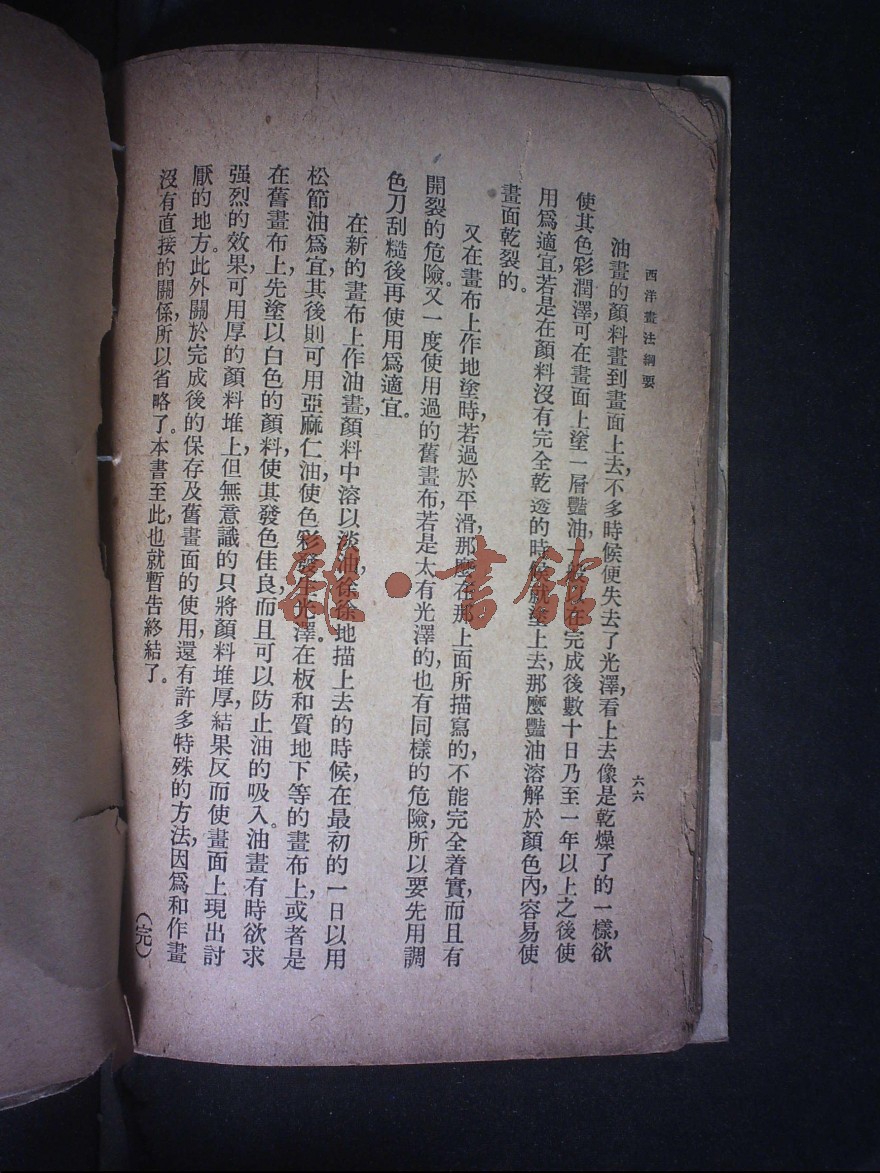 西洋畫法綱要
六六
油畫的顏料畫到畫面上去,不多時候便失去了光澤,看上去像是乾燥了的一樣,欲
使其色彩潤澤,可在畫面上塗一層豔油,一般以在完成後數十日乃至一年以上之後使
用爲適宜,若是在顏料沒有完全乾透的時候就塗上去,那麼豔油溶解於顏色內,容易使
畫面乾裂的。
又在畫布上作地塗時,若過於平滑,那麼在那上面所描寫的,不能完全着實,而且有
開裂的危險。又一度使用過的舊畫布,若是太有光澤的,也有同樣的危險,所以要先用調
色刀刮糙後再使用爲適宜。
在新的畫布上作油畫,顏料中溶以淡油,徐徐地描上去的時候,在最初的一日以用
松節油爲宜,其後則可用亞麻仁油,使色彩發生光澤。在板和質地下等的畫布上,或者是
在舊畫布上,先塗以白色的顏料,使其發色佳良,而且可以防止油的吸入。油畫有時欲求
强烈的效果,可用厚的顏料堆上,但無意識的只將顏料堆厚,結果反而使畫面上現出討
厭的地方。此外關於完成後的保存及舊畫面的使用,還有許多特殊的方法,因爲和作畫
沒有直接的關係,所以省略了。本書至此,也就暫告終結了。
(完)
雜·書館